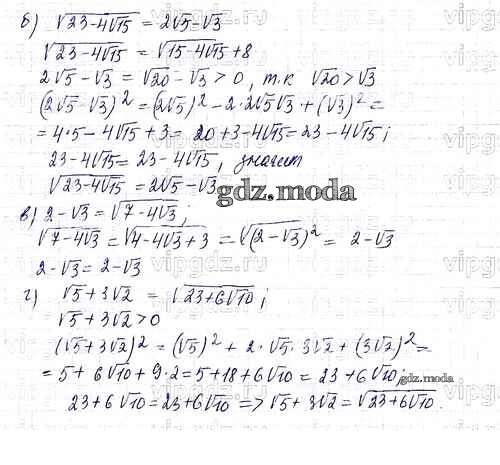 б) √23-4√15 = 2√5-√3
√23-4√15 = √15-4√15+8
2√5-√3 = √20-√3 > 0, т.к √20 > √3
(2√5-√3)² = (2√5)² - 2·2√5√3 + (√3)² =
= 4·5-4√15+3 = 20+3-4√15 = 23-4√15;
23-4√15 = 23-4√15, значит
√23-4√15 = 2√5-√3
gdz.moda
в) 2-√3 = √7-4√3;
√7-4√3 = √4-4√3+3 = √(2-√3)² = 2-√3
2-√3 = 2-√3
г) √5+3√2 = √23+6√10;
√5+3√2 > 0
(√5+3√2)² = (√5)² + 2·√5·3√2 + (3√2)² =
= 5+6√10+9·2 = 5+18+6√10 = 23+6√10;
gdz.moda
23+6√10 = 23+6√10 => √5+3√2 = √23+6√10.